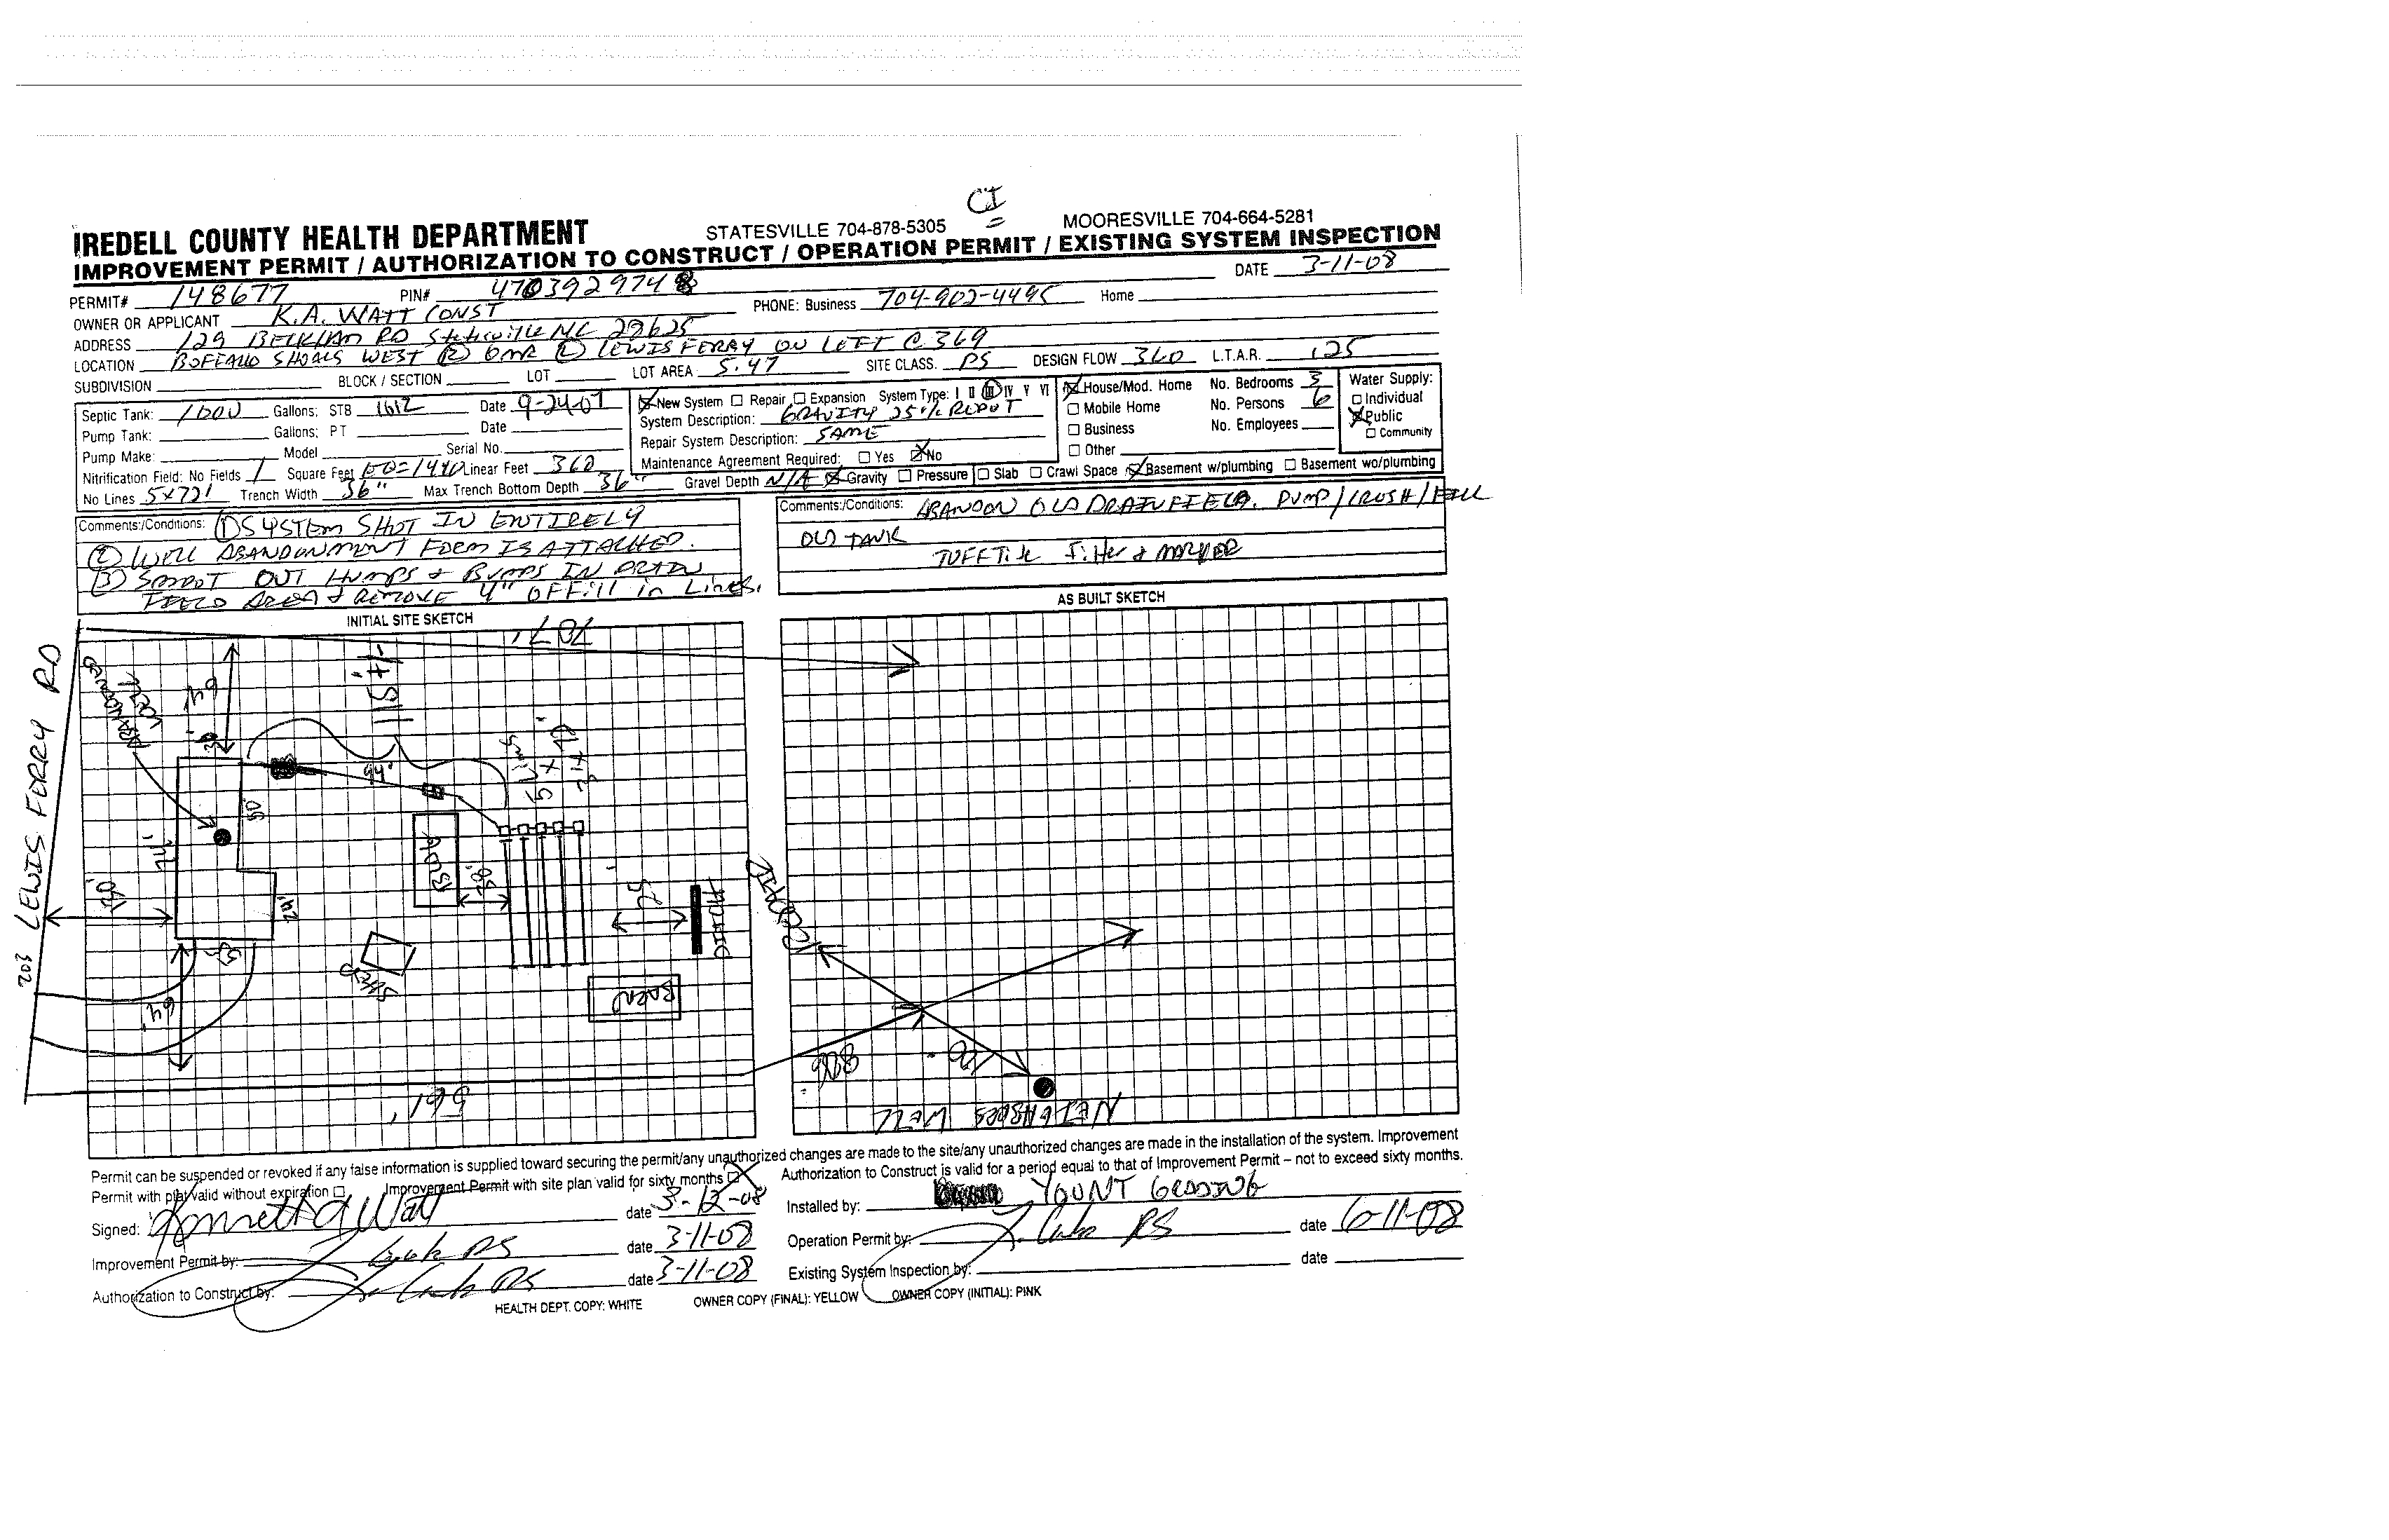 CI
IREDELL COUNTY HEALTH DEPARTMENT STATESVILLE 704-878-5305 MOORESVILLE 704-664-5281
IMPROVEMENT PERMIT / AUTHORIZATION TO CONSTRUCT / OPERATION PERMIT / EXISTING SYSTEM INSPECTION
DATE 3-11-08
PERMIT# 148677 PIN# 4703929748
OWNER OR APPLICANT K.A. WATT CONST PHONE: Business 704-902-4495 Home
ADDRESS 129 RD Statesville NC 28625
LOCATION BUFFALO SHOALS WEST (R) (L) LEWIS FERRY ON LEFT @ 369
SUBDIVISION BLOCK / SECTION LOT LOT AREA 5.47 SITE CLASS. PS DESIGN FLOW 360 L.T.A.R. .25
Septic Tank: 1000 Gallons; STB 1612 Date 9-24-07
Pump Tank: Gallons; PT Date
Pump Make: Model Serial No.
Nitrification Field: No Fields 1 Square Feet EQ=1440 Linear Feet 360
No Lines 5x72' Trench Width 36" Max Trench Bottom Depth 36" Gravel Depth N/A
New System Repair Expansion System Type: I II III IV V VI
System Description: GRAVITY 25% REDUCT
Repair System Description: SAME
Maintenance Agreement Required: Yes No
Gravity Pressure Slab Crawl Space Basement w/plumbing Basement wo/plumbing
House/Mod. Home No. Bedrooms 3
Mobile Home No. Persons 6
Business No. Employees
Other
Water Supply:
Individual
Public
Community
Comments:/Conditions: (1) SYSTEM SHOT IN ENTIRELY
(2) WELL ABANDONMENT FORM IS ATTACHED.
(3) SMOOT OUT HUMPS & BUMPS IN DRAIN
FIELD AREA & REMOVE 4" OFFill in Lines.
Comments:/Conditions: ABANDON OLD DRAINFIELD. PUMP/CRUSH/FILL
OLD TANK
TUFFTite Filter & MARKER
INITIAL SITE SKETCH
AS BUILT SKETCH
203 LEWIS FERRY RD
787'
ABANDONED WELL
64'
30'
115+1'
94'
5 Lines
5 x 72'
50'
74'
140'
24'
ABOVE
50'
75'
DITCH
REPAIR
SHED
BARN
64'
561'
806'
100'
NEIGHBORS WELL
Permit can be suspended or revoked if any false information is supplied toward securing the permit/any unauthorized changes are made to the site/any unauthorized changes are made in the installation of the system. Improvement
Permit with plat valid without expiration Improvement Permit with site plan valid for sixty months Authorization to Construct is valid for a period equal to that of Improvement Permit – not to exceed sixty months.
Signed: Kenneth A Watt date 3-12-08 Installed by: YOUNT GRADING
Improvement Permit by: RS date 3-11-08 Operation Permit by: RS date 6-11-08
Authorization to Construct by: RS date 3-11-08 Existing System Inspection by: date
HEALTH DEPT. COPY: WHITE OWNER COPY (FINAL): YELLOW OWNER COPY (INITIAL): PINK